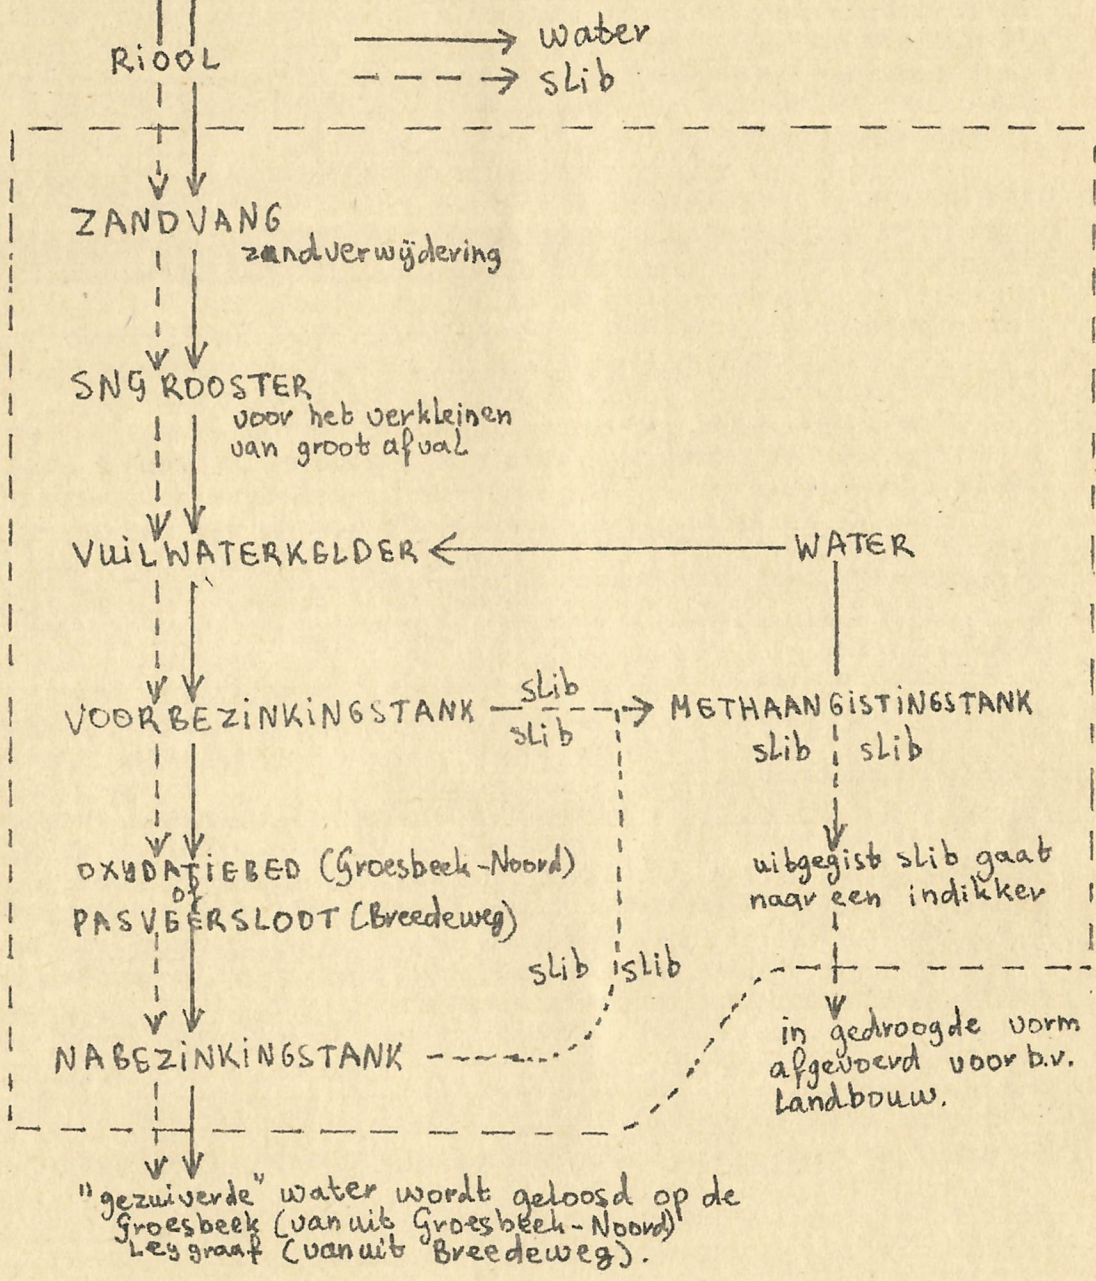 RIOOL
water
slib
ZANDVANG
zandverwijdering
SNIJ ROOSTER
voor het verkleinen
van groot afval
VUILWATERKELDER
WATER
VOORBEZINKINGSTANK
slib
slib
METHAANGISTINGSTANK
slib slib
OXYDATIEBED (Groesbeek-Noord)
of
PASVEERSLOOT (Breedeweg)
uitgegist slib gaat
naar een indikker
slib slib
NABEZINKINGSTANK
in gedroogde vorm
afgevoerd voor b.v.
landbouw.
"gezuiverde" water wordt geloosd op de
Groesbeek (vanuit Groesbeek-Noord)
Leygraaf (vanuit Breedeweg).